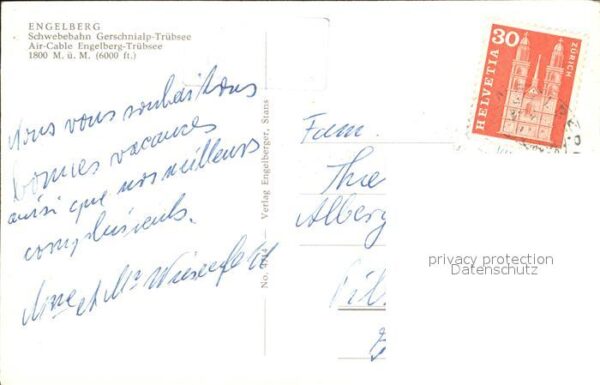 ENGELBERG
Schwebebahn Gerschnialp-Trübsee
Air-Cable Engelberg-Trübsee
1800 M. ü. M. (6000 ft.)
Nous vous souhaitons
bonnes vacances
ainsi que nos meilleurs
compliments.
et Mr
Verlag Engelberger, Stans
No.
Fam.
HELVETIA
30
ZÜRICH
privacy protection
Datenschutz